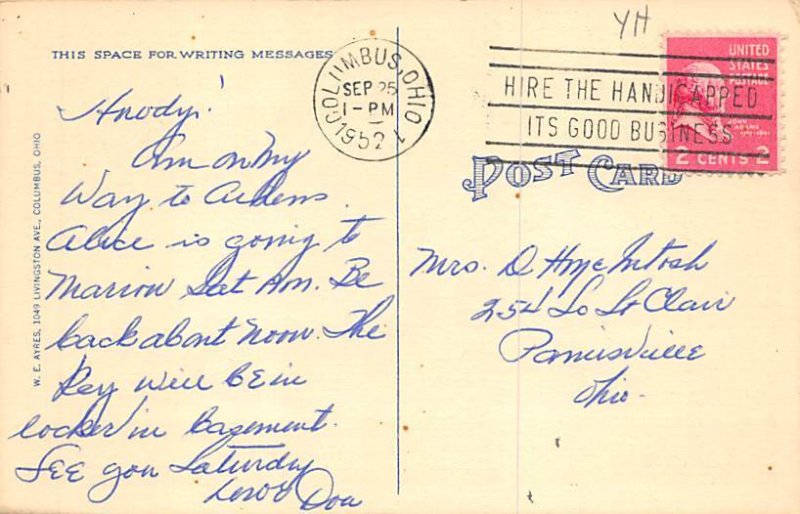 YH
THIS SPACE FOR WRITING MESSAGES
COLUMBUS, OHIO 1
SEP 25
1 - PM
1952
HIRE THE HANDICAPPED
ITS GOOD BUSINESS
UNITED
STATES
POSTAGE
JOHN
ADAMS
2 CENTS 2
POST CARD
W. E. AYRES, 1049 LIVINGSTON AVE., COLUMBUS, OHIO
Howdy!
Am on My
Way to
Alice is going to
Marion Sat Am. Be
back about Noon. The
Key will be in
locker in basement.
SEE you Saturday
Love Don
Mrs. D
254 So St Clair
Painesville
Ohio.